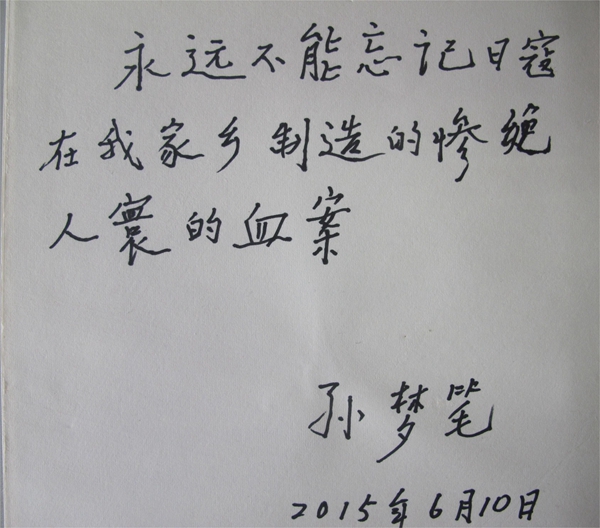 永远不能忘记日寇
在我家乡制造的惨绝
人寰的血案
孙梦笔
2015年6月10日